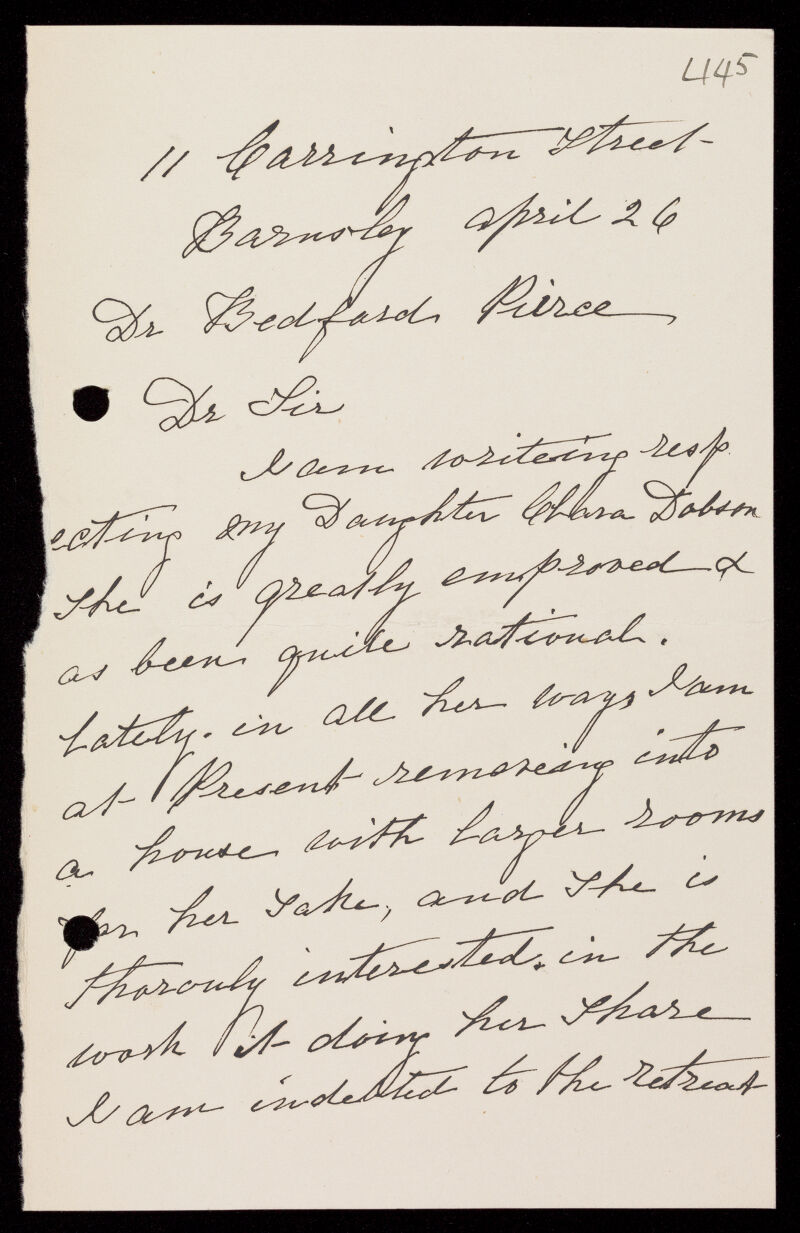 445
11 Carrington Street
Barnsley april 26
Dr Bedford Pierce
Dr Sir
I am writeing resp
ecting my Daughter Clara Dobson
She is greatly emproved &
as been quite rational.
Lately. in all her ways I am
at Present remoreing into
a house with larger rooms
for her Sake, and She is
thorouly interested. in the
work & doing her Share
I am indebted to the retreat